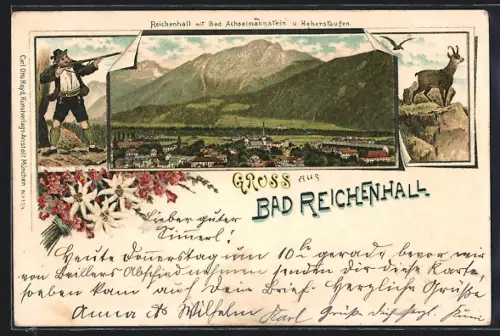 Reichenhall mit Bad Achselmannstein u Hoherstaufen
Carl Otto Hayd, Kunstverlags-Anstalt München No 154
GRUSS aus
BAD REICHENHALL
Lieber guter
Heute Donnerstag um 10 gerade, bevor wir
von Abschied nehmen senden dir diese Karte,
soeben kam auch dein Brief. Herzliche Grüße
Anna Wilhelm Karl Grüße dich